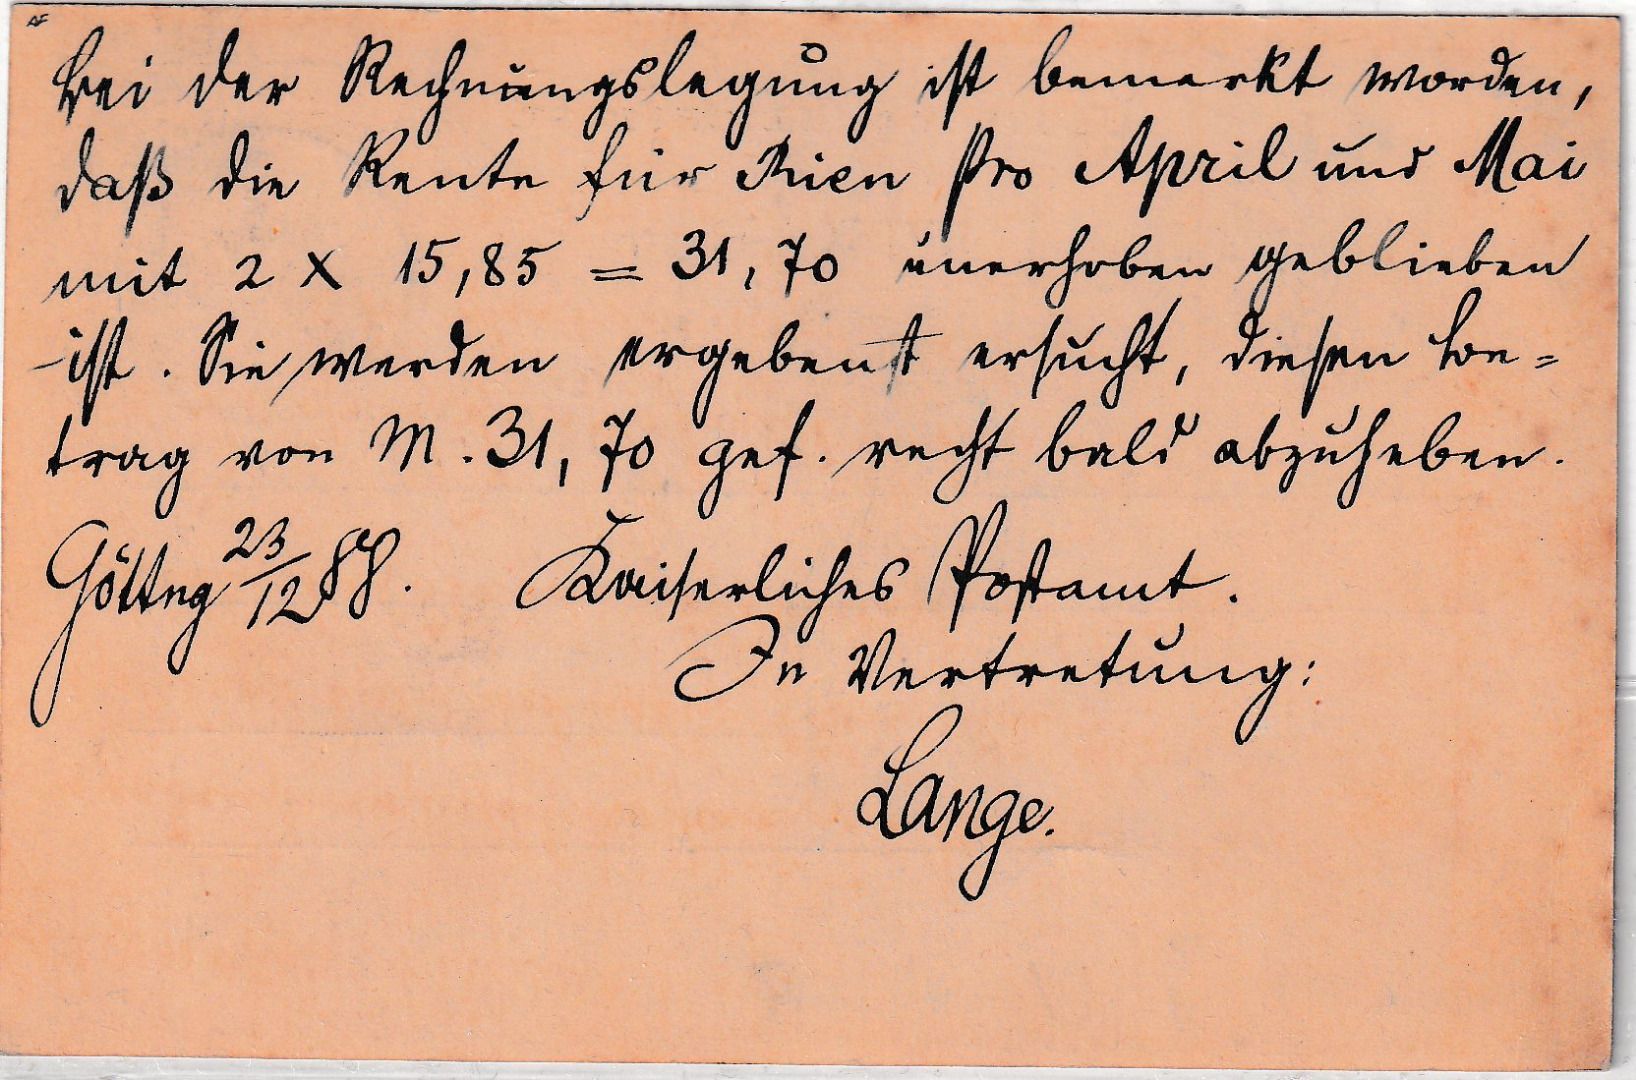 Bei der Rechnungslegung ist bemerkt worden,
daß die Rente für Rien pro April und Mai
mit 2 x 15,85 = 31,70 unerhoben geblieben
ist. Sie werden ergebenst ersucht, diesen Be=
trag von M. 31,70 gef. recht bald abzuheben.
Göttng 23/12 88. Kaiserliches Postamt.
In Vertretung:
Lange.